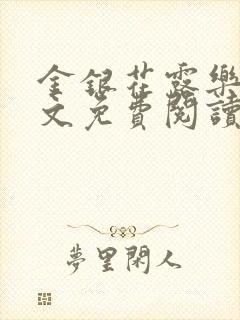 金銀花露樂
文免費閱讀
夢里閑人